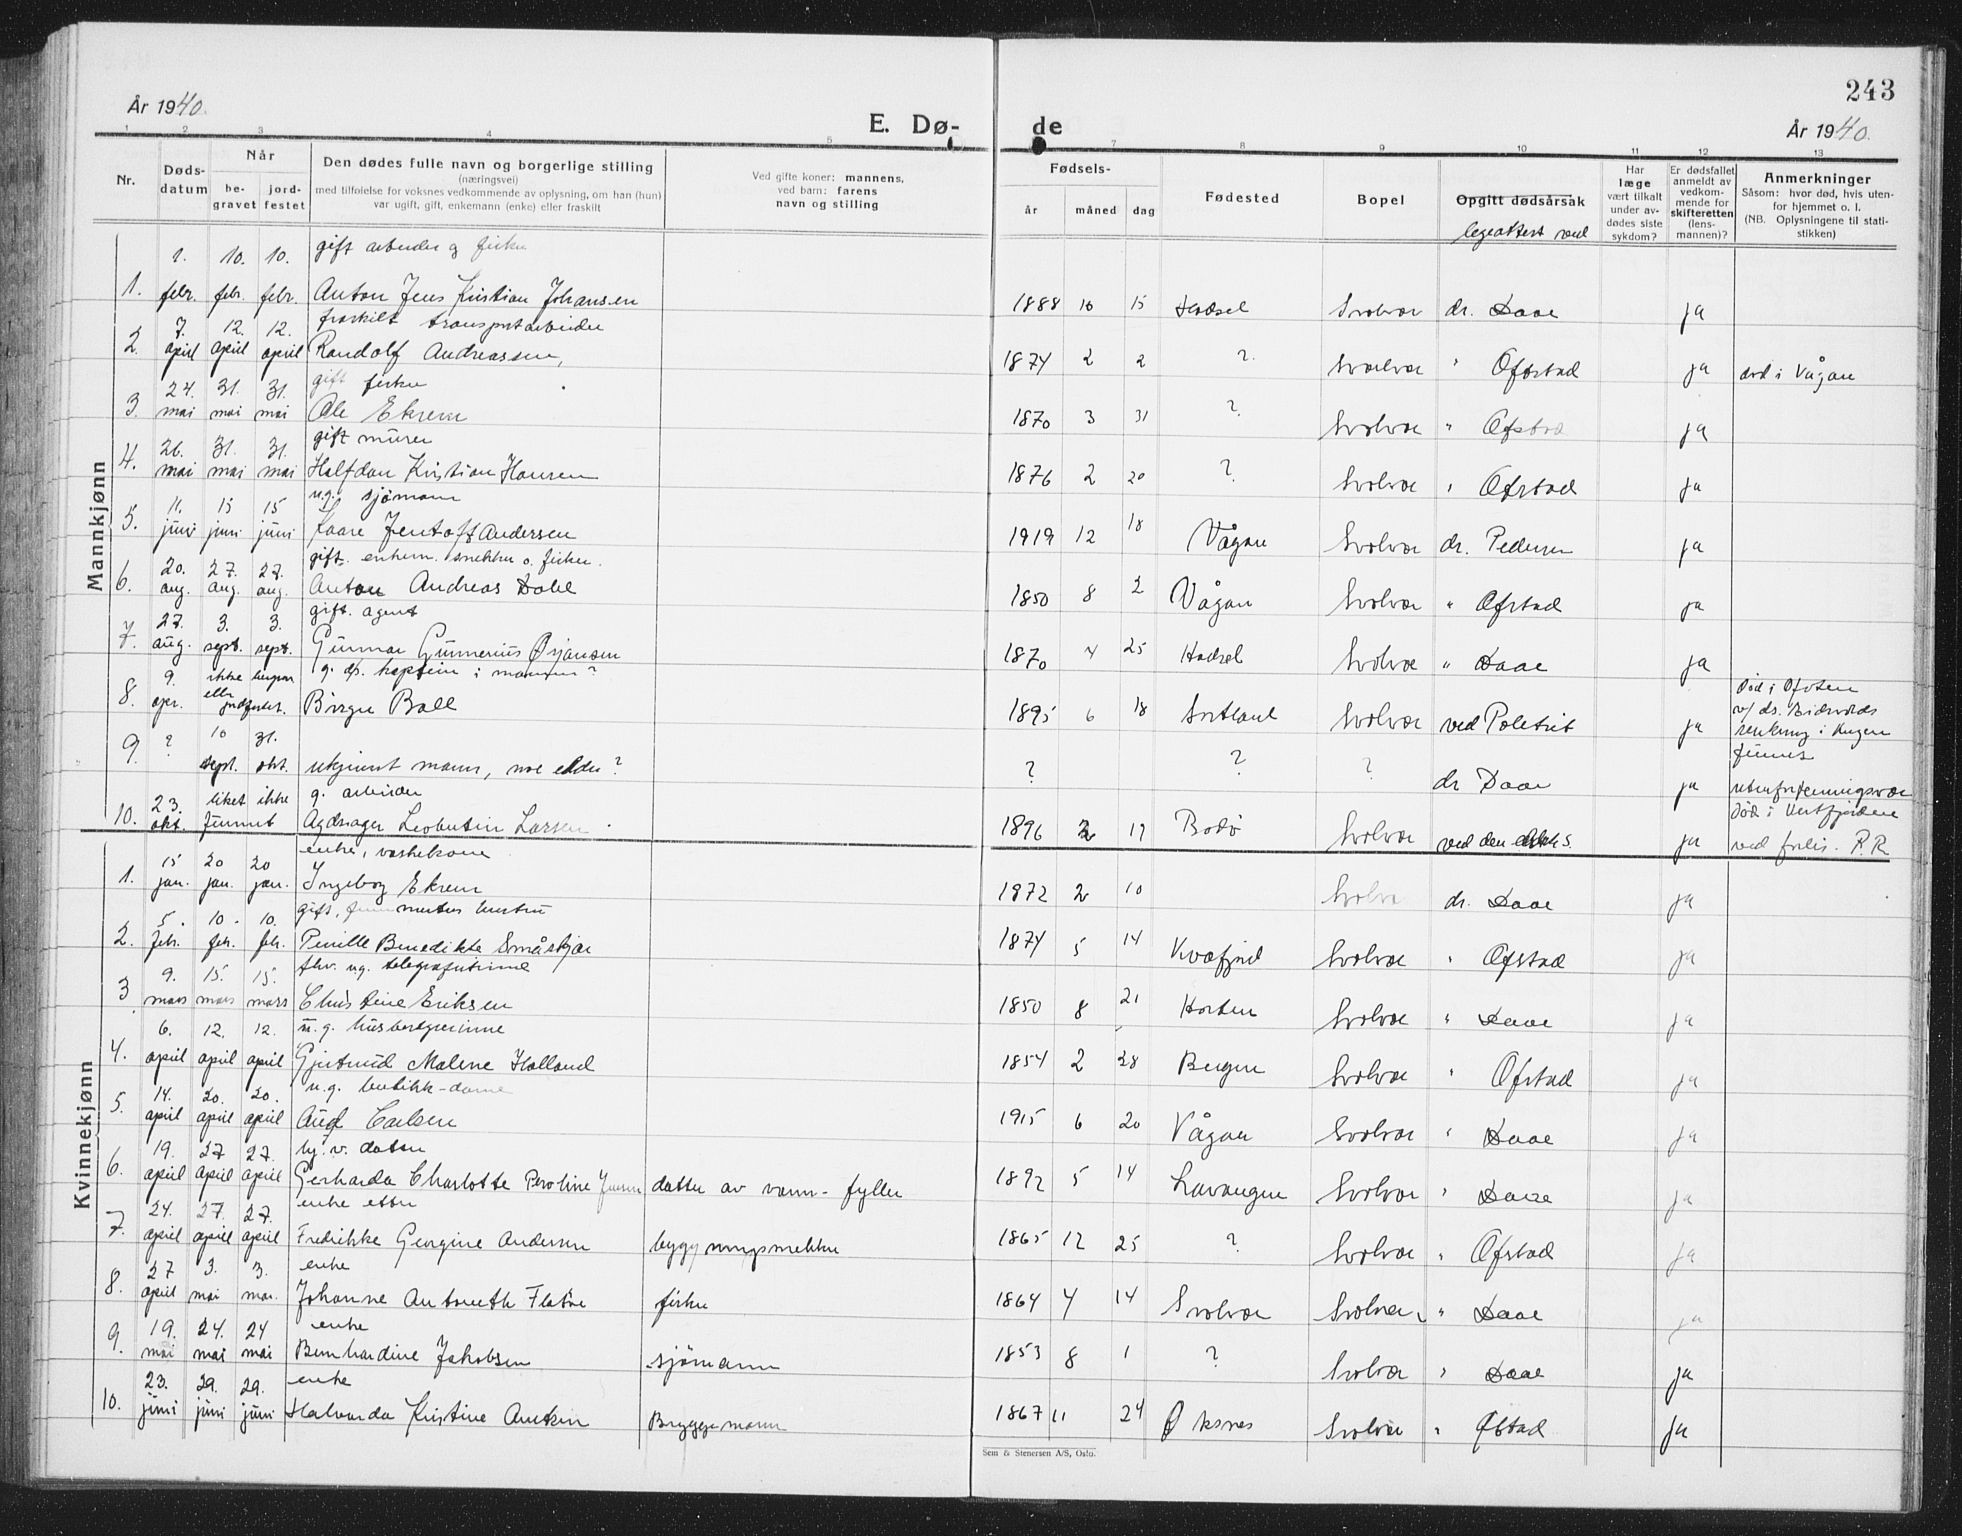 243
År 1940.
E. Dø-
de
År 1940.
1 2 3 4 5 7 8 9 10 11 12 13
Nr.
Døds-
datum
Når
be-
gravet
jord-
festet
Den dødes fulle navn og borgerlige stilling
(næringsvei)
med tilføielse for voksnes vedkommende av oplysning, om han (hun)
var ugift, gift, enkemann (enke) eller fraskilt
Ved gifte koner: mannens,
ved barn: farens
navn og stilling
Fødsels-
år måned dag
Fødested
Bopel
Opgitt dødsårsak
legeattest ved
Har
læge
vært tilkalt
under av-
dødes siste
sykdom?
Er dødsfallet
anmeldt av
vedkom-
mende for
skifteretten
(lens-
mannen)?
Anmerkninger
Såsom: hvor død, hvis uten-
for hjemmet o. l.
(NB. Oplysningene til stati-
stikken)
Mannkjønn
10. 10. gift arbeider og fisker
1. febr. febr. febr. Anton Jens Kristian Johansen 1888 10 15 Hadsel Svolvær dr. Daae ja
7. 12. 12. fraskilt transportarbeider
2. april april april Randolf Andreassen, 1874 2 2 ? Svolvær " Ofstad ja død i Vågan
24. 31. 31. gift fisker
3. mai mai mai Ole Ekrem 1870 3 31 ? Svolvær " Ofstad ja
26. 31. 31. gift murer
4. mai mai mai Halfdan Kristian Hansen 1876 2 20 ? Svolvær " Ofstad ja
11. 15 15 ug. sjømann
5. juni juni juni Kaare Jentoft Andersen 1919 12 18 Vågan Svolvær dr. Pedersen ja
20. 27. 27. gift. enkem. snekker o. fisker.
6. aug. aug. aug. Anton Andreas Dahl 1850 8 2 Vågan Svolvær " Ofstad ja
27. 3. 3. gift. agent
7. aug. sept. sept. Gunnar Gunnerius Ørjansen 1870 4 25 Hadsel Svolvær " Daae ja
9. ikke g. kaptein i marinen?
8. apr. eller jordfestet. Birger Ball 1895 6 18 Svolvær ved Politiet ja
Død i Ofoten
v/ ds. Eidsvolds
senkning i krigen
9. ? 10 sept. 31. okt. ukjent mann, noe eldre? ? ? ? dr Daae ja
23. liket ikke g. arbeider
10. okt. funnet Agdrager Leobertin Larsen 1896 2 19 Bodø Svolvær ved den ja
Død i Vestfjorden
ved forlis. P.R
Kvinnekjønn
15 20 20 enke, vaskekone
1. jan. jan. jan. Ingeborg Ekrem 1972 2 10 Svolvær dr. Daae ja
5. 10. 10. gift, hustru
2. febr. feb. feb. Pernille Benedikte Småskjær 1874 5 14 Kvæfjord Svolvær " Ofstad ja
9. 15. 15. fhv. ug. telegrafistinne
3 mars mars mars Christine Eriksen 1850 8 21 Horten Svolvær " Daae ja
6. 12. 12. u.g. husbestyrerinne
4. april april april Gjertrud Malene Holland 1854 2 28 Bergen Svolvær " Ofstad ja
14. 20. 20. u.g. butikk-dame
5. april april april Aud Carlsen 1915 6 20 Vågan Svolvær " Daae ja
19. 27 27. hj. v. datter
6. april april april Gerharda Charlotte Peroline Jensen datter av vann-fyller 1892 5 14 Lavangen Svolvær " Daae ja
24. 27. 27. enke etter
7. april april april Fredrikke Georgine Andersen bygningsnekker 1865 12 25 ? Svolvær " Ofstad ja
27 3. 3. enke
8. april mai mai. Johanne Antonette Flatøe fisker 1864 4 14 Svolvær Svolvær " Daae ja
19. 24. 24 enke
9. mai mai mai Bernhardine Jakobsen sjømann 1853 8 1 ? Svolvær " Daae ja
23. 29. 29. enke
10. juni juni juni Halvarda Kristine Amtsen Bryggemann 1867 11 24 Øksnes Svolvær " Ofstad ja
Sem & Stenersen A/S, Oslo.